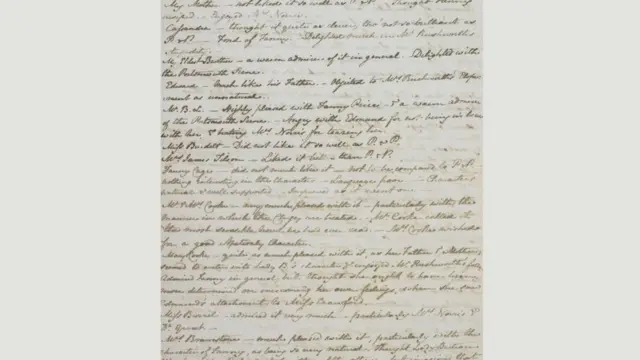 My Mother - not liked it so well as P. & P. - Thought Fanny
insipid. - Enjoyed Mrs. Norris.
Cassandra - thought it quite as clever, tho' not so brilliant as
P. & P. - Fond of Fanny. - Delighted much in Mr. Rushworth's
stupidity.
My Eldest Brother - a warm admirer of it in general. - Delighted with
the Portsmouth Scene.
Edward - Much like his Father. - Objected to Mrs. Rushworth's Elope-
ment as unnatural.
Mr. B. L. - Highly pleased with Fanny Price - & a warm admirer
of the Portsmouth Scene. - Angry with Edmund for not being in love
with her, & hating Mrs. Norris for teazing her.
Miss Burdett - Did not like it so well as P. & P.
Mrs. James Tilson - Liked it better than P. & P.
Fanny Cage - did not much like it - not to be compared to P. & P. -
nothing interesting in the Characters - Language poor. - Characters
natural & well supported - Improved as it went on.
Mr. & Mrs. Cooke - very much pleased with it - particularly with the
Manner in which the Clergy are treated. - Mr. Cooke called it
"the most sensible Novel he had ever read." - Mrs. Cooke wished
for a good Matronly Character.
Mary Cooke - quite as much pleased with it, as her Father & Mother;
seemed to enter into Lady B.'s character, & enjoyed Mr. Rushworth's folly.
Admired Fanny in general; but thought she ought to have been
more determined on overcoming her own feelings, when she saw
Edmund's attachment to Miss Crawford. -
Miss Burrel - admired it very much - particularly Mrs. Norris &
Dr. Grant. -
Mrs. Bramstone - much pleased with it; particularly with the
character of Fanny, as being so very natural. Thought Lady Bertram